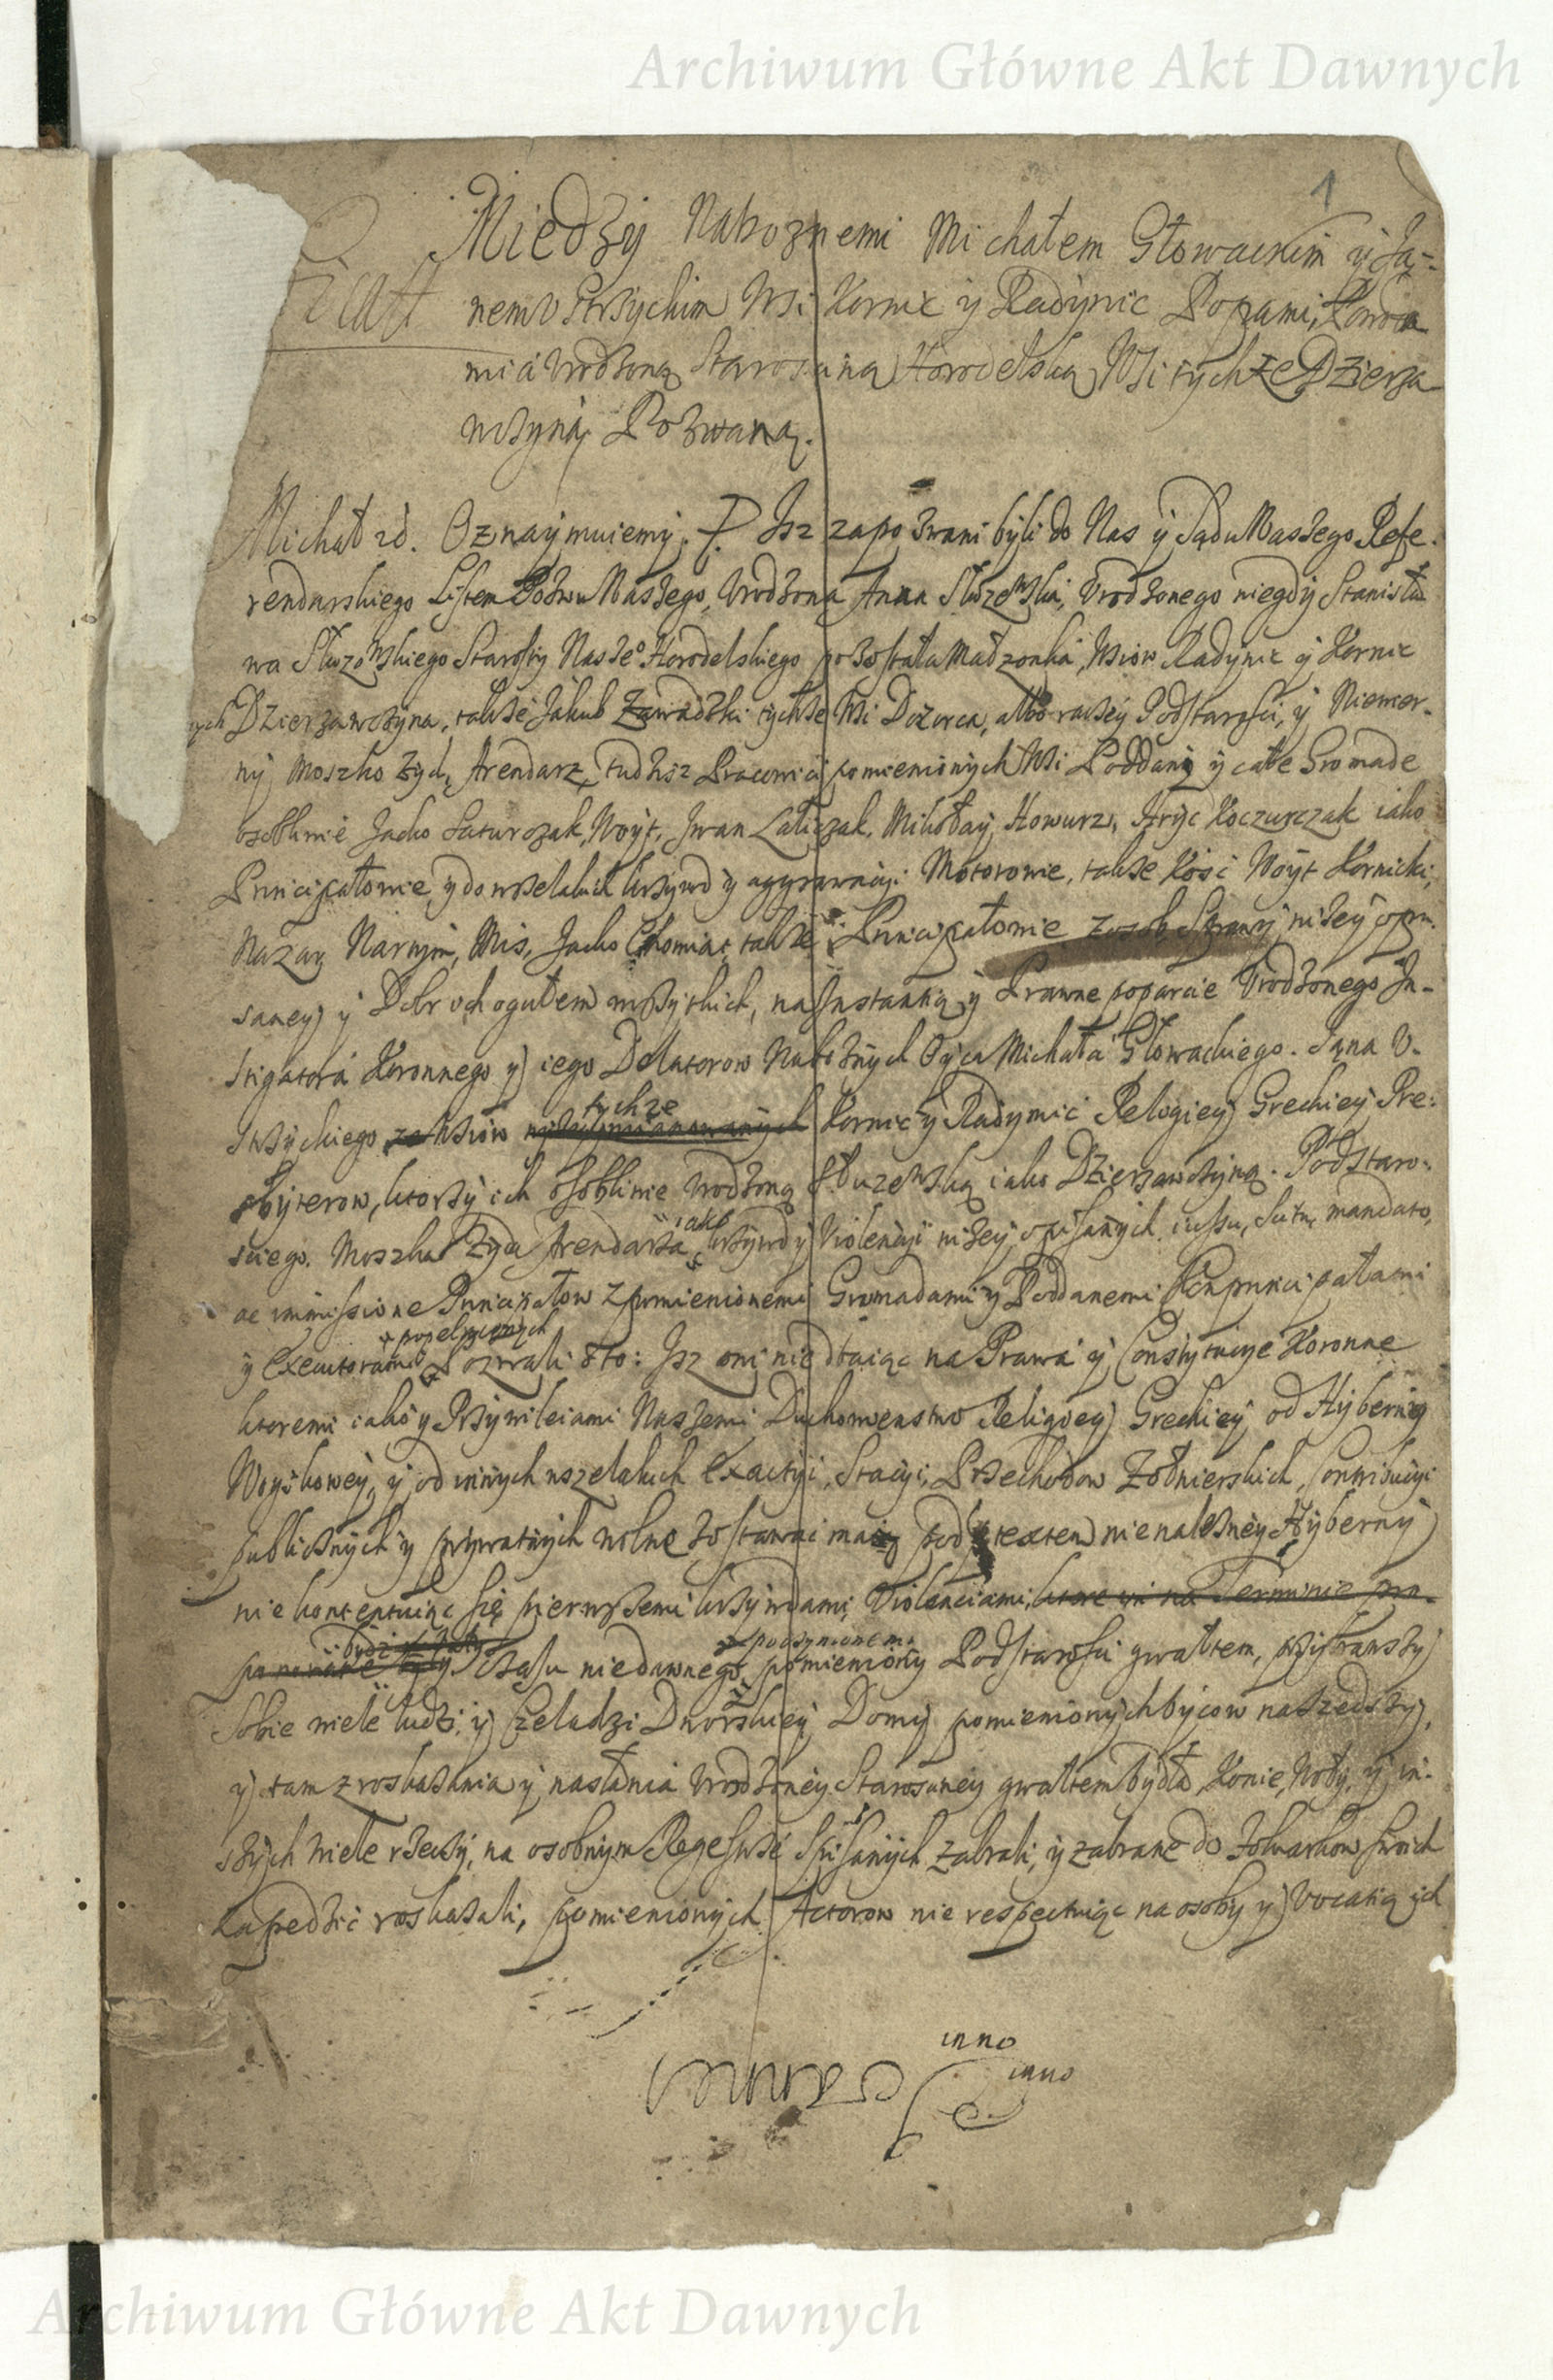 Archiwum Główne Akt Dawnych
1
Miedzy Naboznemi Michałem Głowackim y Ja-
nem Ustrzyckim Wsi Kornic y Radynic Popami, Powo
mi á Urodzoną Starościną Horodelską Wsi tychże Dzierza
wczyną Pozwaną.
Michał id. Oznaymuiemy. Isz zapozwani byli do Nas y Sądu Naszego Refe-
rendarskiego Listem Pozwu Naszego, Urodzona Anna Służewska, Urodzonego niegdy Stanisła
wa Służewskiego Starosty Nasze° Horodelskiego pozostała Małzonka, Wsiow Radynic y Kornic
Dzierzawczyna, także Jakub Zawadzki tychże Wsi Dozorca, albo raczey Podstarości, y Niewier-
ny Moszko Zyd, Arendarz, tudzisz Pracowici pomienionych Wsi Poddani y całe Gromade
osobliwie Jacko Woyt, Iwan Mikołay Hryc Koczurczak iako
Principałowie, y do wszelakich krzywd y aggrawacyi Motorowie, także Kość Woyt Kornicki,
Nazar Mis, Jacko także Principałowie z osob Sprawy niżey opi-
saney y Dobr ich ogułem wszytkich, na Instantią y Prawne poparcie Urodzonego In-
stigatora Koronnego y iego Delatorow Naboznych Oyca Michała Głowackiego. Jana U-
strzyckiego ze Wsiow tychze Kornic y Radynic Religiey Greckiey Pre-
sbyterow, ktorzy ich osobliwie Urodzoną Służewską iako Dzierzawczyną. Podstaro-
sciego. Moszka Zyda Arendarza iako krzywd y Violencyi niżey opisanych iussu, mandato,
ac immissione Principałow z pomienionemi Gromadami y Poddanemi Principałami
y Executorami popełnionych Pozwali o to: Isz oni nie dbaiąc na Prawa y Constytucye Koronne
ktoremi iako y Przywileiami Naszemi Duchowenstwo Religiey Greckiey od Hyberny
Woyskowey, y od innych wszelakich Exactyi, Stacyi, Przechodow Zołnierskich, Contribucyi
publicznych y prywatnych wolne zostawać maią pod textem nienależney Hyberny
nie kontentuiąc się pierwszemi krzywdami, Violenciami, ktore im na Terminie pro-
ponowane będą Czasu niedawnego poczynionemi pomieniony Podstarości gwałtem, przybrawszy
sobie wiele ludzi, y Czeladzi Dworskiey Domy pomienionych Oycow naszedszy,
y tam z roskazania y nasłania Urodzoney Starościney gwałtem Bydła, Konie, Woły, y in-
szych wiele rzeczy, na osobnym Regestrze spisanych zabrali, y zabrane do folwarkow swoich
zapedzić roskazali, pomienionych Actorow nie respectuiąc na osoby y Vocatią ich
inno
inno
Archiwum Główne Akt Dawnych